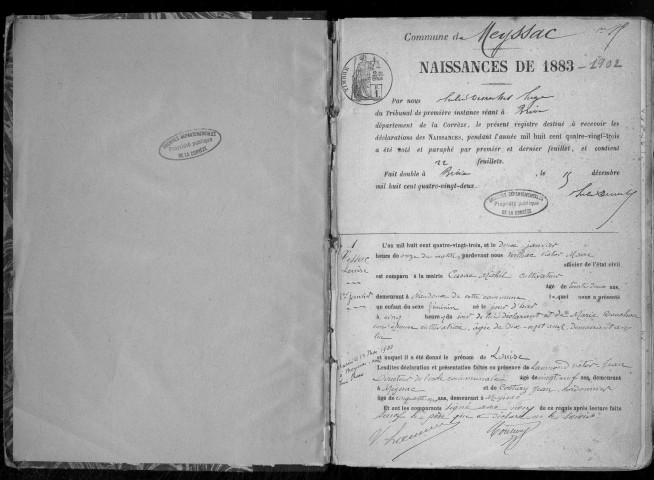 ARCHIVES DÉPARTEMENTALES
Propriété publique
DE LA CORRÈZE
Commune de Meyssac
TIMBRE
NAISSANCES DE 1883 - 1902
Par nous
du Tribunal de première instance séant à Brive
département de la Corrèze, le présent registre destiné à recevoir les
déclarations des NAISSANCES, pendant l'année mil huit cent quatre-vingt-trois
a été coté et paraphé par premier et dernier feuillet, et contient
22 feuillets.
Fait double à Brive, le 15 décembre
mil huit cent quatre-vingt-deux.
ARCHIVES DÉPARTEMENTALES
Propriété publique
DE LA CORRÈZE
1
Louise
1er janvier
L'an mil huit cent quatre-vingt-trois, et le deux janvier
heure de onze du matin, pardevant nous Victor Maire
officier de l'état civil
est comparu à la mairie Michel cultivateur
âgé de trente deux ans,
demeurant à de cette commune lequel nous a présenté
un enfant du sexe féminin né le jour d'hier
à cinq heures du soir de lui déclarant et de Marie
son épouse cultivatrice, âgée de dix-sept ans, demeurant avec
lui
et auquel il a été donné le prénom de Louise
Lesdites déclaration et présentation faites en présence de Victor Jean
Directeur de l'école communale âgé de vingt neuf ans, demeurant
à Meyssac et de Jean cordonnier
âgé de cinquante ans, demeurant à Meyssac
Et ont les comparants signé avec nous de ce requis après lecture faite
sauf le père qui a déclaré ne le savoir